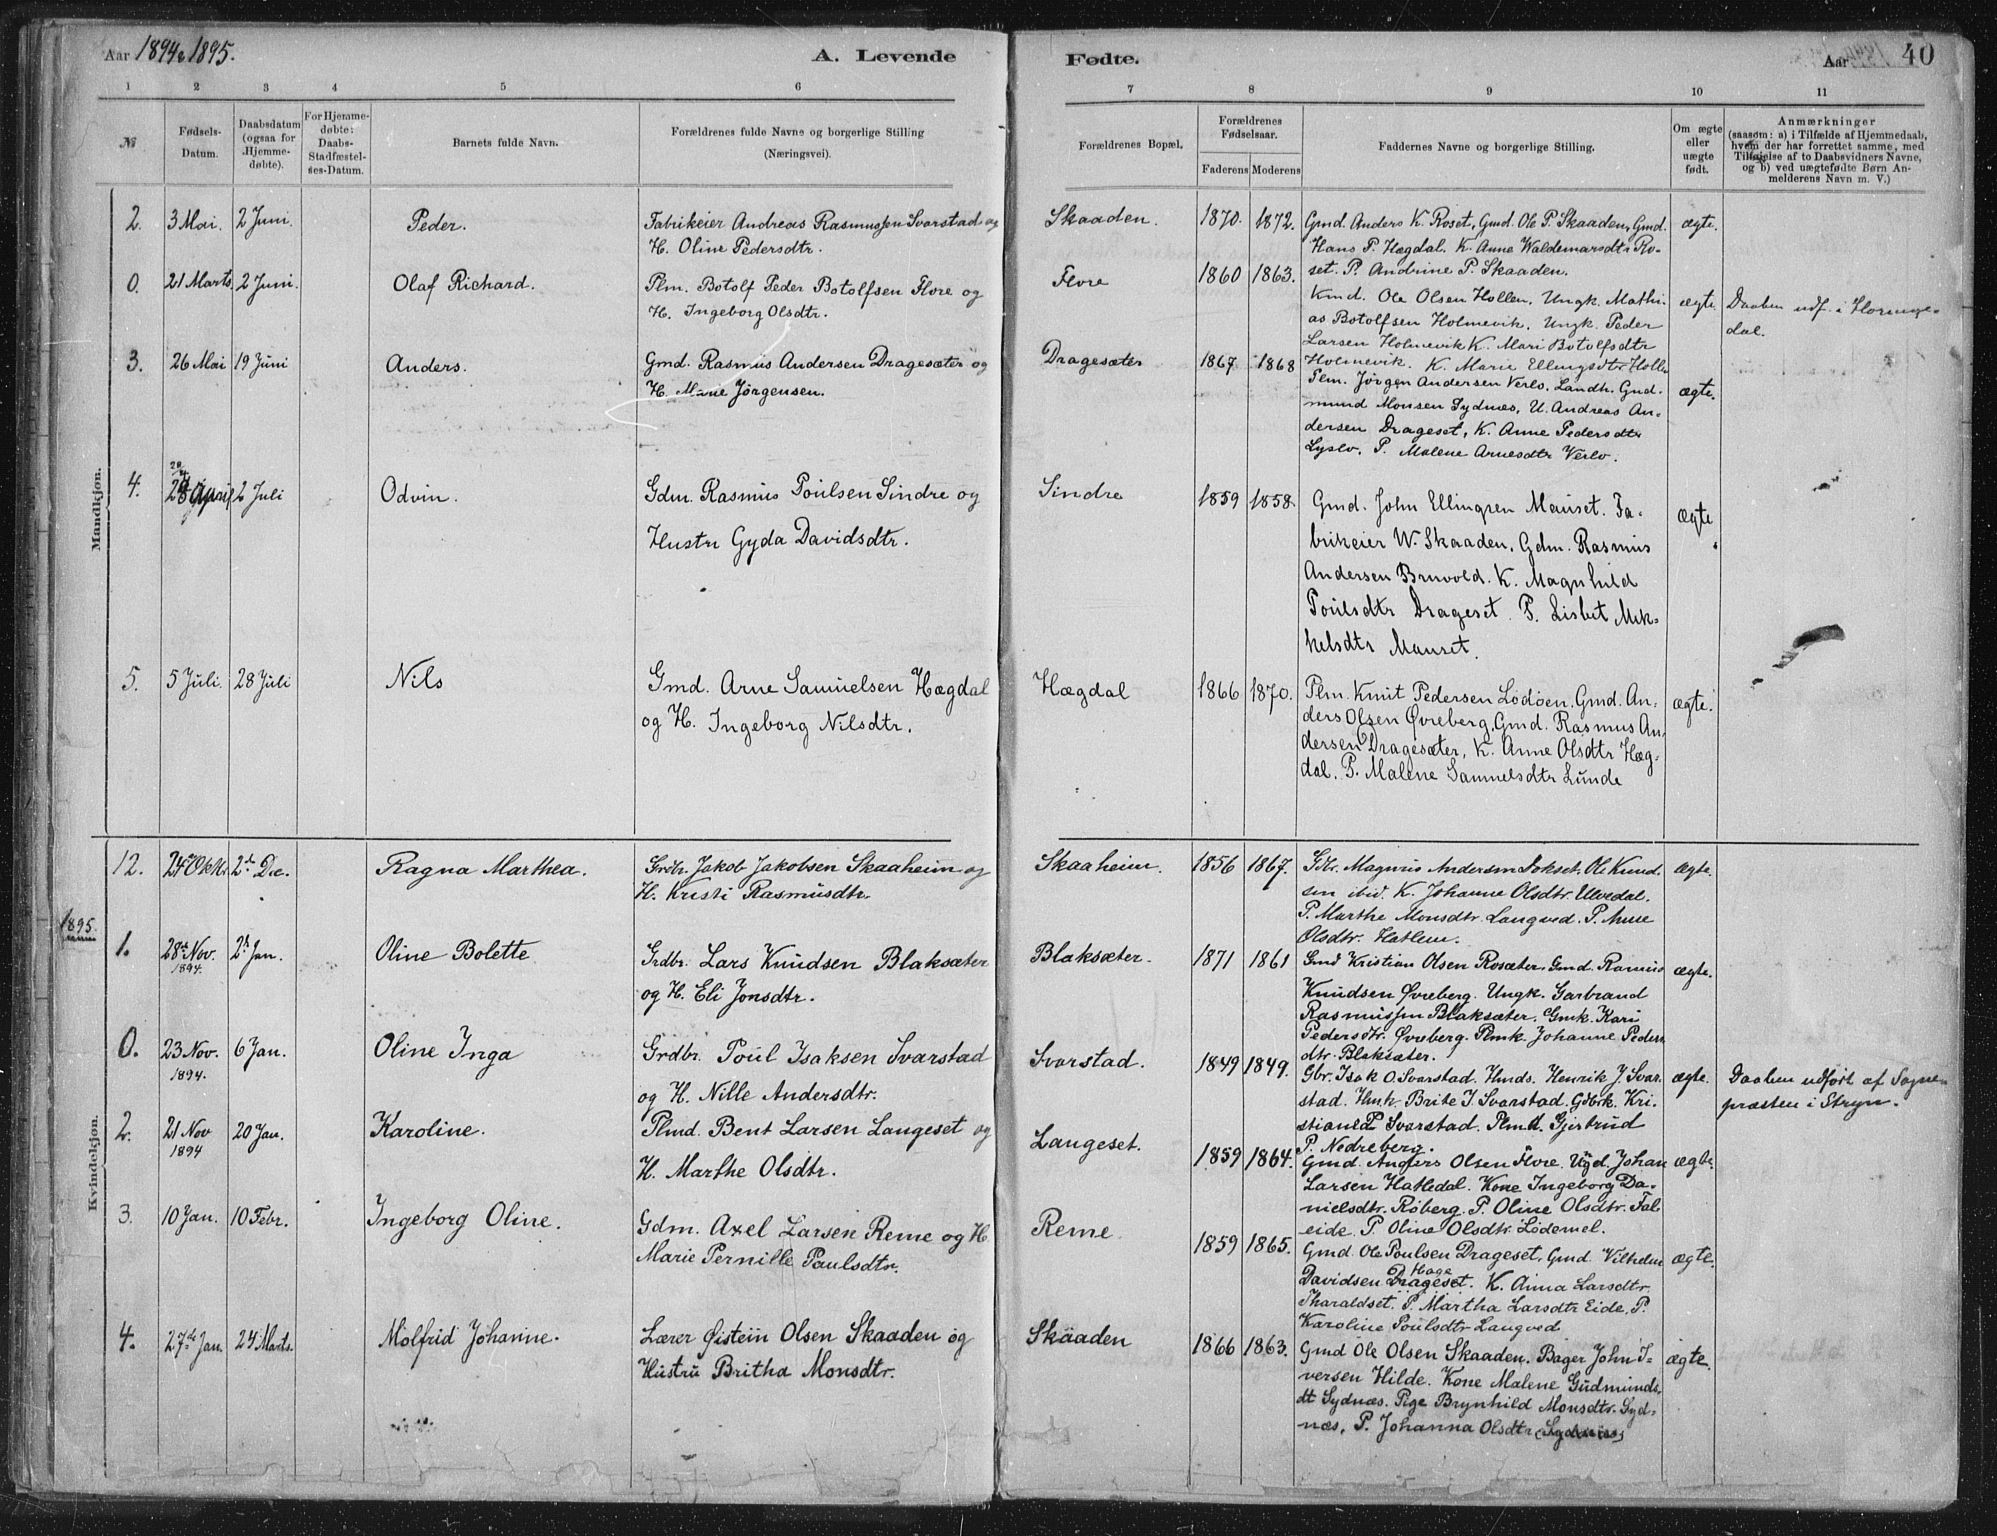 Aar 1894 & 1895.
A. Levende
Fødte.
Aar
40
1
2
3
4
5
6
7
8
9
10
11
№
Fødsels-
Datum.
Daabsdatum
(ogsaa for
Hjemme-
døbte).
For Hjemme-
døbte:
Daabs-
Stadfæstel-
ses-Datum.
Barnets fulde Navn.
Forældrenes fulde Navne og borgerlige Stilling
(Næringsvei).
Forældrenes Bopæl.
Forældrenes
Fødselsaar.
Faderens
Moderens
Faddernes Navne og borgerlige Stilling.
Om ægte
eller
uægte
født.
Anmærkninger
(saasom: a) i Tilfælde af Hjemmedaab,
hvem der har forrettet samme, med
Tilføielse af to Daabsvidners Navne,
og b) ved uægtefødte Børn An-
melderens Navn m. V.)
Mandkjøn.
2. 3 Mai. 2 Juni. Peder. Fabrikeier Andreas Rasmussen Svarstad og
H. Oline Pedersdtr.
Skaaden. 1870. 1872. Gmd. Anders K. Roset, Gmd. Ole P. Skaaden, Gmd. ægte.
Hans P. Hægdal. K. Anne Waldemarsdtr Ro-
set. P. Andrine P. Skaaden.
0. 21 Marts 2 Juni. Olaf Richard. Plm. Botolf Peder Botolfsen Flore og
H. Ingeborg Olsdtr.
Flore 1860 1863.
Kmd. Ole Olsen Hollen, Ungk. Mathi- ægte. Daaben udf. i Horninge-
as Botolfsen Holmevik, Ungk. Peder dal.
Larsen Holmevik K. Mari Botolfsdtr
Holmevik. K. Marie Ellingsdtr Holle
3. 26 Mai 19 Juni Anders. Gmd. Rasmus Andersen Dragesæter og
H. Marie Jørgensen.
Dragesæter 1867 1868
Plm. Jørgen Andersen Verlo, Landh. Gud- ægte.
mund Monsen Sydnes, U. Andreas An-
dersen Drageset, K. Anne Pedersdtr
Lyslo, P. Malene Arnesdtr Verlo.
4. April 2 Juli Odvin. Gdm. Rasmus Poulsen Sindre og
Hustru Gyda Davidsdtr.
Sindre 1859 1858. Gmd. John Ellingsen Mauset. Fa- ægte
brikeier W. Skaaden, Gdm. Rasmus
Andersen Bruvold. K. Magnhild
Poulsdtr Drageset. P. Lisbet Mik-
kelsdtr Mauset.
5. 5 Juli. 28 Juli Nils Gmd. Arne Samuelsen Hægdal
og H. Ingeborg Nilsdtr.
Hægdal 1866 1870. Plm. Knut Pedersen Lødøen, Gmd. An- ægte.
ders Olsen Øvreberg, Gmd. Rasmus An-
dersen Dragesæter, K. Anne Olsdtr Hæg-
dal. P. Malene Samuelsdtr Lunde
Kvindekjøn.
12. 24 Okt. 2d Dec. Ragna Marthea. Grdbr. Jakob Jakobsen Skaaheim og
H. Kristi Rasmusdtr.
Skaaheim. 1856 1867. Gbr. Magnus Andersen Lokset. Ole Knud- ægte.
sen ibid. K. Johanne Olsdtr. Ulvedal.
P. Marthe Monsdtr. Langved. P. Anne
Olsdtr. Hatlem.
1895.
1. 28 Nov. 1894. 2 Jan. Oline Bolette Grdbr. Lars Knudsen Blaksæter
og H. Eli Jonsdtr.
Blaksæter. 1871 1861 Gmd Kristian Olsen Rosæter, Gmd. Rasmus ægte.
Knudsen Øvreberg. Ungk. Garbrand
Rasmussen Blaksæter. Gmk. Kari
Pedersdtr. Øvreberg. Plmk. Johanne Peders
dtr. Blaksæter.
0. 23 Nov. 1894. 6 Jan. Oline Inga Grdbr. Poul Isaksen Svarstad
og H. Nille Andersdtr.
Svarstad. 1849 1849. Gbr. Isak O. Svarstad. Hmds. Henrik J. Svar- ægte. Daaben udført af Sogne-
stad. Hmk. Brite I. Svarstad. Gdbrk. Kri- præsten i Stryn.
stiane P. Svarstad. Plmk. Gjertrud
P. Nedreberg.
2. 21 Nov 1894 20 Jan. Karoline. Plmd. Bent Larsen Langeset og
H. Marthe Olsdtr.
Langeset. 1859 1864. Gmd. Anders Olsen Flore. Ugd. Johan ægte.
Larsen Hatledal. Kone Ingeborg Da-
nielsdtr. Røberg. P. Oline Olsdtr. Fal
eide. P. Oline Olsdtr. Lødemel.
3. 10 Jan. 10 Febr. Ingeborg Oline. Gdm. Axel Larsen Reme og H.
Marie Pernille Paulsdtr.
Reme. 1859 1865. Gmd. Ole Poulsen Drageset, Gmd. Vilhelm ægte.
Davidsen Drageset. Hage K. Anna Larsdtr.
Tharaldset. P. Martha Larsdtr Eide, P.
Karoline Poulsdtr Langved
4. 27de Jan. 24 Marts. Molfrid Johanne. Lærer Øistein Olsen Skaaden og
Hustru Britha Monsdtr.
Skaaden 1866 1863. Gmd Ole Olsen Skaaden. Bager John I- ægte.
versen Hilde. Kone Malene Gudmunds,
dt Sydnæs. Pige Brynhild Monsdtr. Syd-
næs, P. Johanna Olsdtr (Sydnæs)